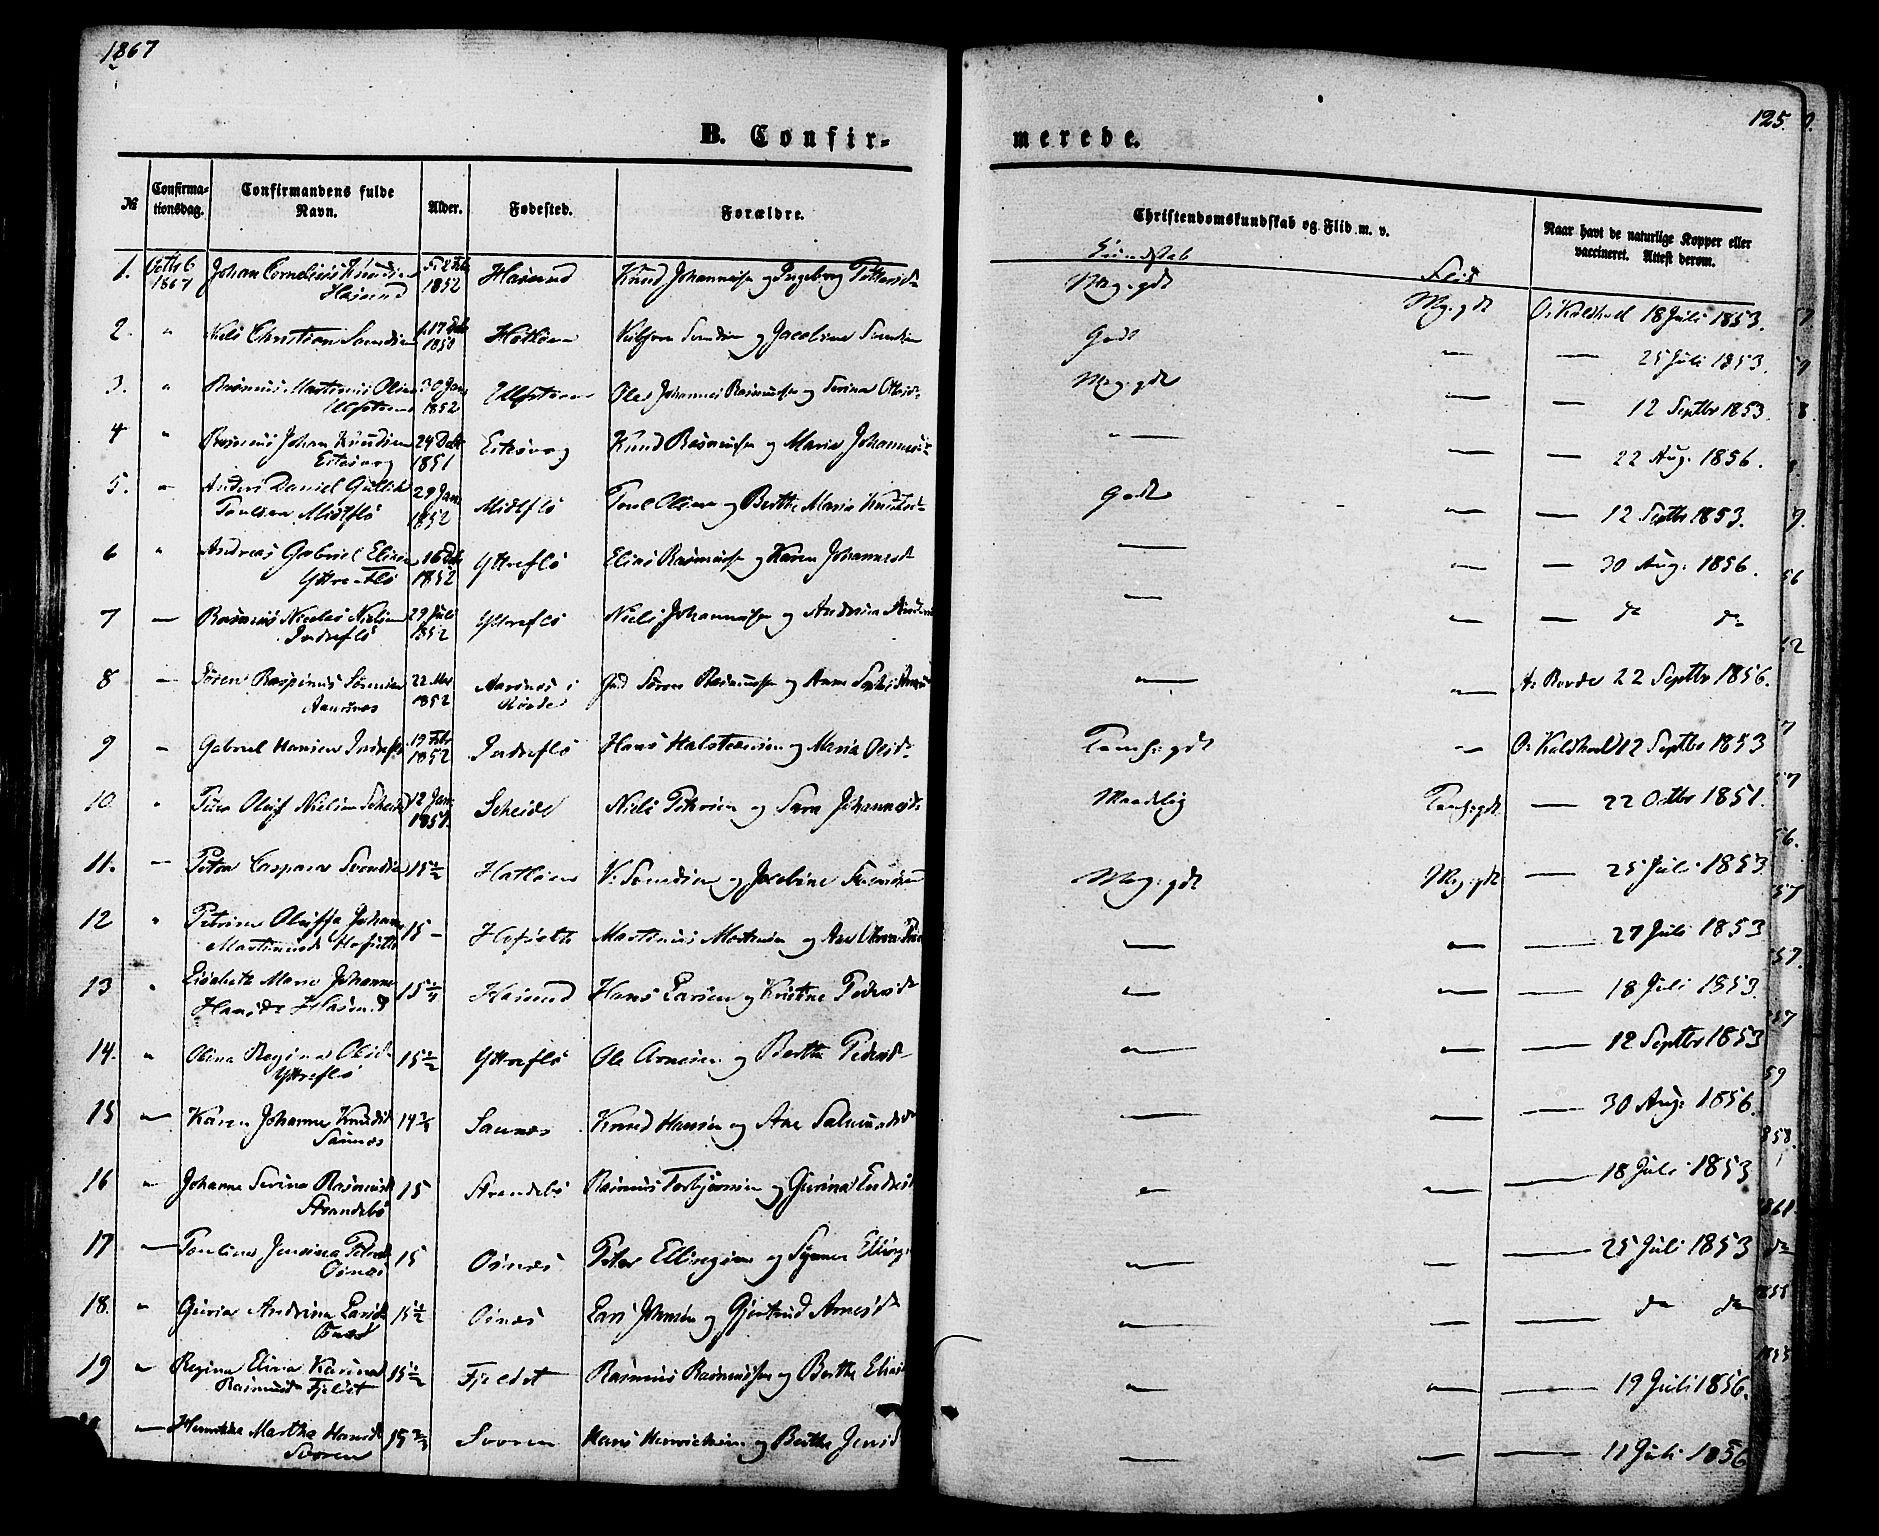 1867
125.
B. Confirmerede.
№ Confirmationsdag. Confirmandens fulde Navn. Alder. Fødested. Forældre. Christendomskundskab og Flid m. v. Naar havt de naturlige Kopper eller vaccineret. Attest derom.
Kundskab Flid
1. Octbr 6 1867 Johan Cornelius Knudsen Hasund 1852 Hasund Knud Johannesen og Ingeborg Pettersd. Meg. gdt Meg. gdt O. Kaldhoel 18 Juli 1853.
2. " Niels Christian Svendsen 1850 Hatløen Svendsen og Jacobine Godt — — 25 Juli 1853.
3. " Rasmus Martinus Olsen Ulfsteen 30 Jan. 1852 Ulfsteen Ole Johannes Rasmussen og Serina Olsd. Meg. gdt — — 12 Septbr 1853.
4 " Rasmus Johan Knudsen Eitesvog 24 Decbr 1851 Eitesvog Knud Rasmussen og Maria Johannesd. — — 22 Aug. 1856.
5. " Anders Daniel Poulsen Midtflø 29 Jan. 1852 Midtflø Poul Olsen og Berthe Maria Knudsd. Godt — — 12 Septbr 1853.
6 " Andreas Gabriel Eliasen Yttreflø 1852 Yttreflø Elias Rasmussen og Karen Johannesd. — — — 30 Aug. 1856.
7 — Rasmus Nicolai Nielsen Indreflø 29 Juli 1852 Yttreflø Niels Johannessen og Andrina — — — do do
8 — Søren Rasmus Sørensen Aarsnes 22 Mai 1852 Aarsnes i Rovde Søren Rasmussen og Anne — — A. Rovde 22 Septbr 1856.
9 — Gabriel Hansen Indreflø 19 Febr 1852 Indreflø Hans Halsteensen og Maria Olsd. Temh. gdt — O. Kaldhoel 12 Septbr 1853
10. " Oluf Nielsen Scheide 12 Jan. 1851. Scheide Niels Petersen og Sara Johannesd. Maadelig Temh. gdt — 22 Octbr 1851.
11. — Petra Caspara Svendsd. 15 ½ Hatløen V. Svendsen og Jacobine Meg. gdt Meg. gdt — 25 Juli 1853
12 " Petrine Oluffa Johanne Martinusd. Hofsett 15 — Hofsett Martinus Mortensen og Ane — — — 27 Juli 1853
13 " Elisabeth Marie Johanne Hansd. Hasund 15 ¼ Hasund Hans Larsen og Kristine Pedersd. — — — 18 Juli 1853.
14. " Olina Regina Olsd. Yttreflø 15 ½ Yttreflø Ole Arnesen og Berthe Pedersd. — — — 12 Septbr 1853
15 — Karen Johanne Knudsd. Saunes 14 ¾ Saunes Knud Hansen og Ane Salmundsd. — — — 30 Aug. 1856.
16 " Johanne Serina Rasmusd. Strandebø 15 Strandebø Rasmus Torbjørnsen og Gurina Endresd. — — — 18 Juli 1853
17 — Pauline Jensina Petersd. Osnes 15 Osnes Peter Ellingsen og Synneve Ellingsd. — — — 25 Juli 1853
18. " Gurine Andrina Larsd. Osnes 15 ½ Osnes Lars Jensen og Gjertrud Arnesd. — — — do do
19 " Regina Elina Karina Rasmusd. Fjeldet 15 ½ Fjeldet Rasmus Rasmussen og Berthe Eliasd. — — — 19 Juli 1856.
— Henrikka Martha Hansd. Svoren 15 ⅔ Svoren Hans Henrichsen og Berthe Jensd. — — — 11 Juli 1856